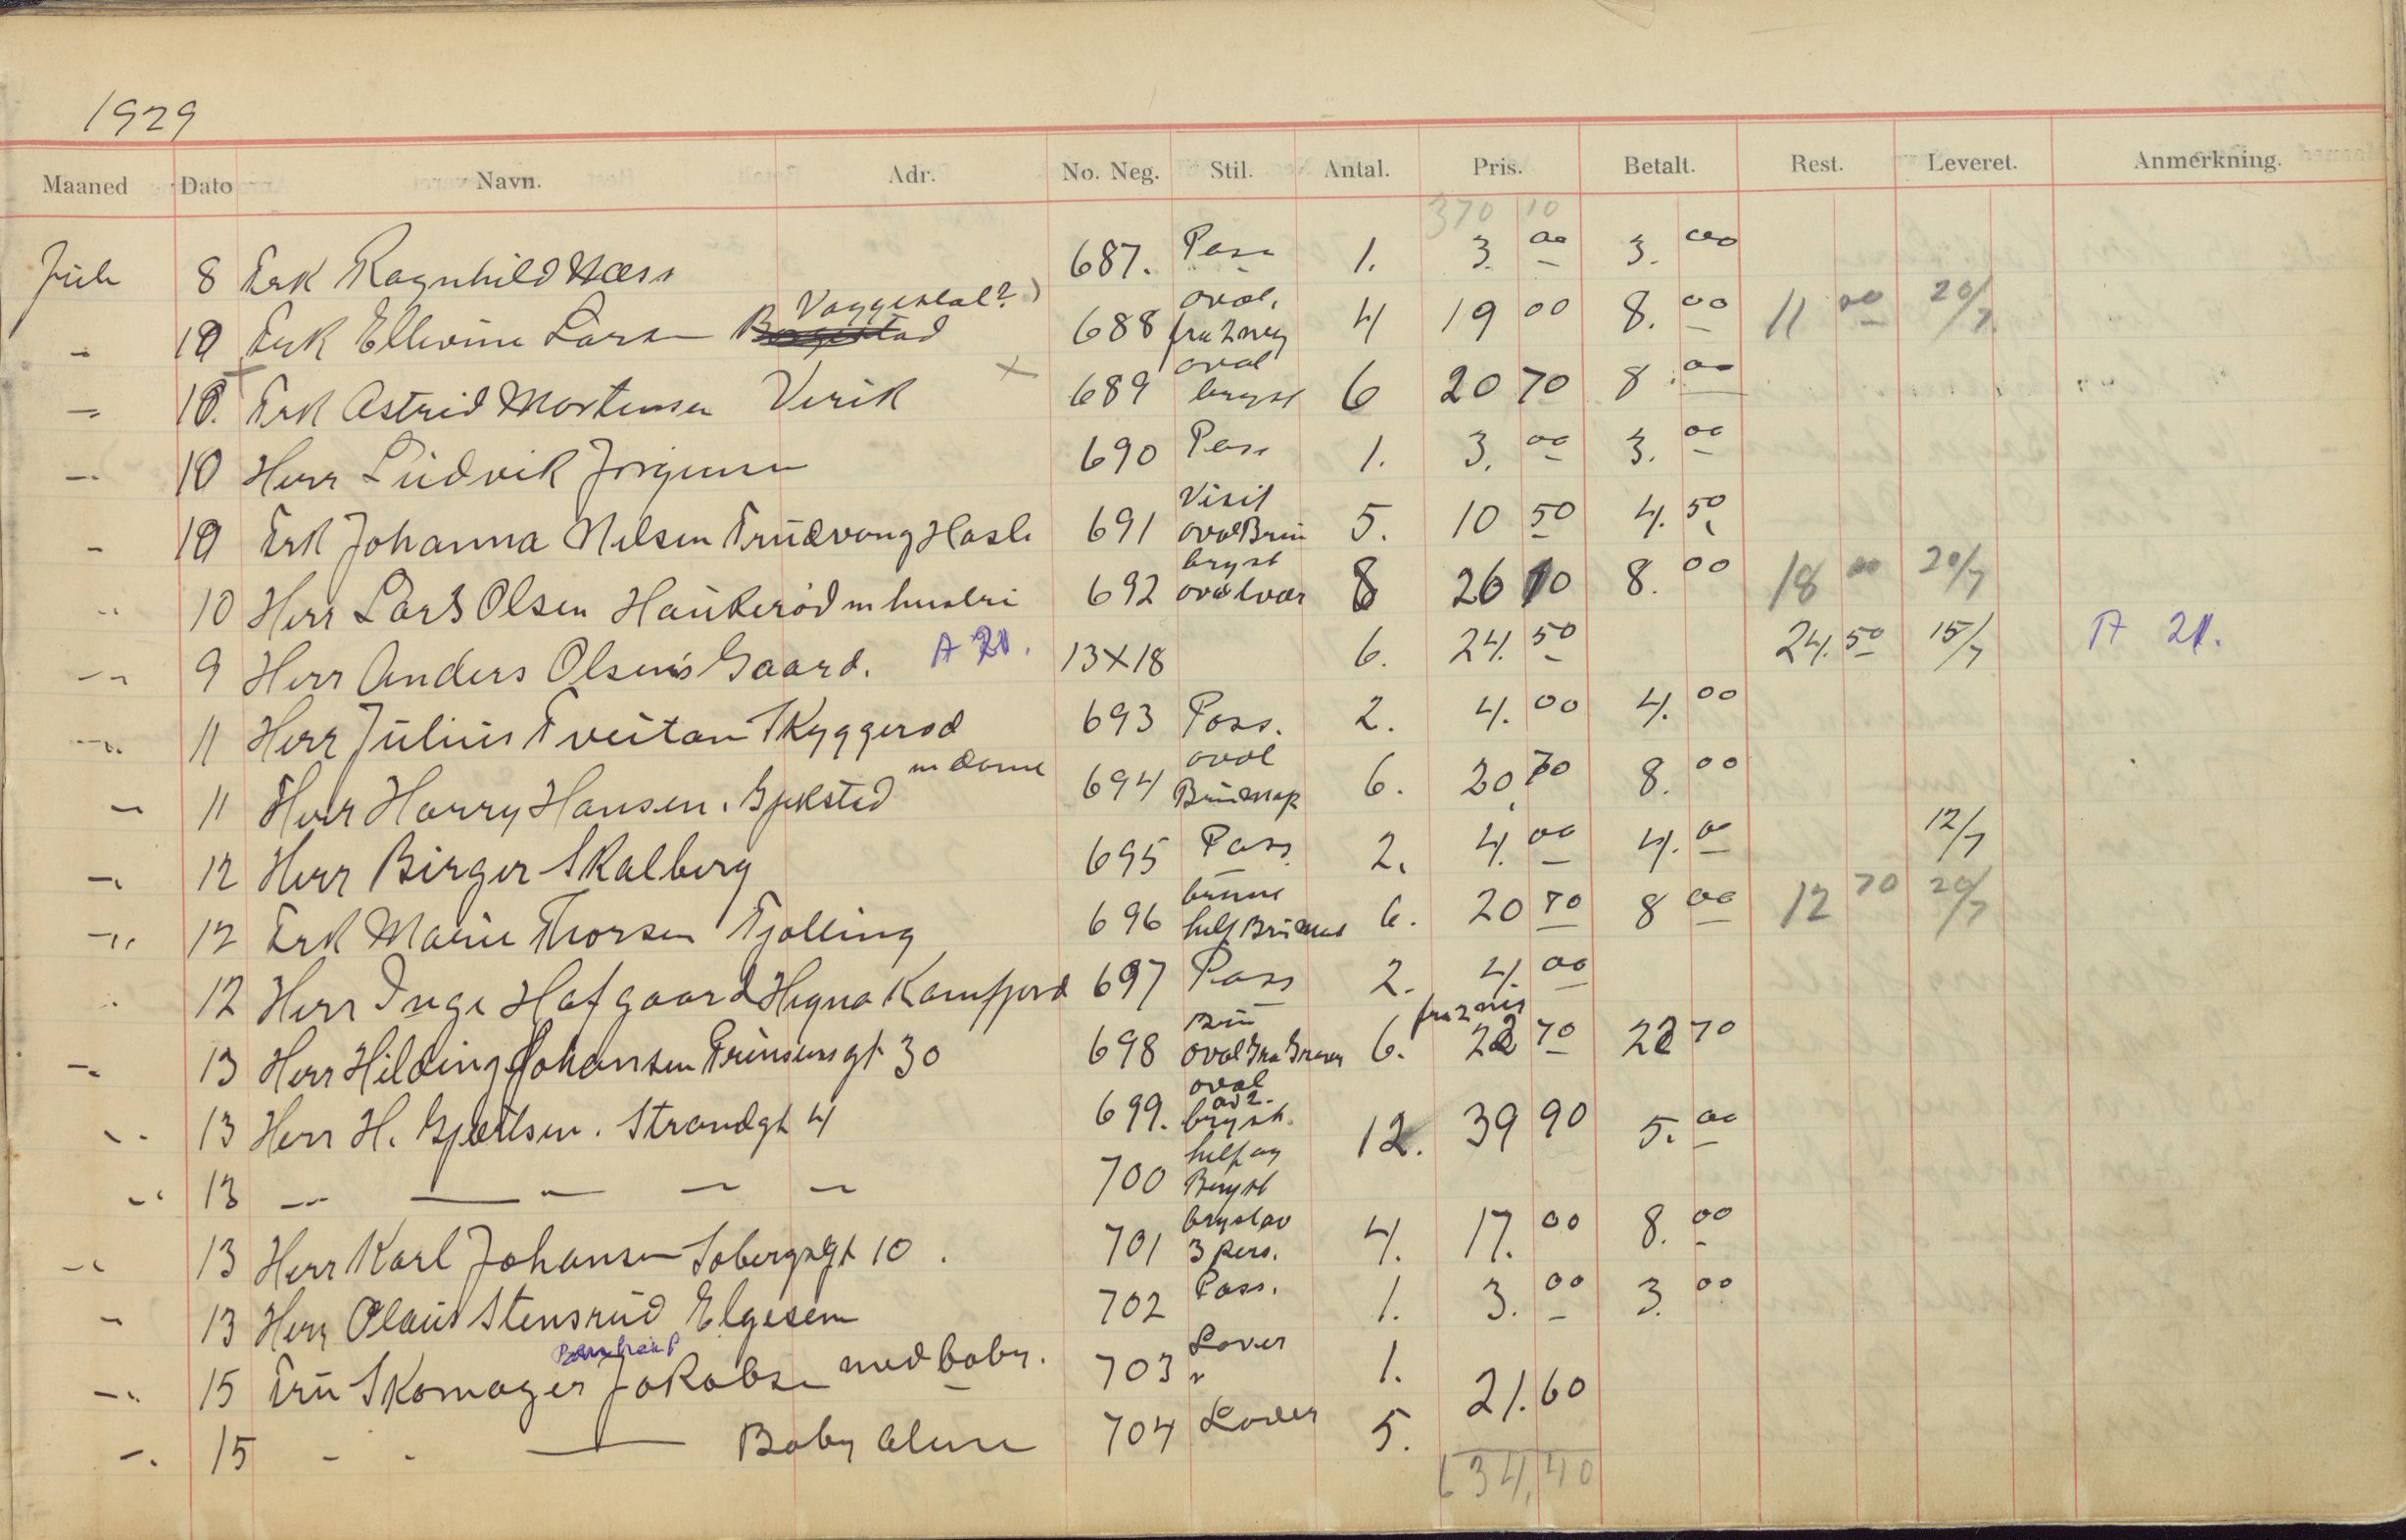 1929
Maaned Dato Navn. Adr. No. Neg. Stil. Antal. Pris. Betalt. Rest. Leveret. Anmerkning.
370 10
Juli 8 Frk Ragnhild Næss 687. Pass 1. 3. 00 3. 00
Vaggestal?)
10 Frk Ellevine Larsen 688 oval. fra 2 neg 4 19 00 8. 00 11 00 20/7
10. Frk Astrid Mortensen Virik 689 oval bryst 6 20 70 8. 00
10 Herr Ludvik Jørgensen 690 Pass 1. 3. 00 3. 00
10 Frk Johanna Nilsen Trudvang Hasle 691 Visit oval Brun 5. 10 50 4. 50
10 Herr Lars Olsen Haukerød m hustru 692 bryst oval 8 26 10 8. 00 18 00 20/7
9 Herr Anders Olsen's Gaard. A 21. 13X18 6. 24. 50 24. 50 15/7 A 21.
11 Herr Julius Tveitan Skyggerød 693 Pass. 2. 4. 00 4. 00
11 Herr Harry Hansen. Gjekstad m dame 694 oval 6. 20 70 8. 00
12 Herr Birger Skalberg 695 Pass 2. 4. 00 4. 00 12/7
12 Frk Marie Thorsen Tjølling 696 6. 20 70 8 00 12 70 20/7
12 Herr Inge Hafgaard Kamfjord 697 Pass 2. 4. 00
fra 2 neg
13 Herr Hilding Johansen Prinsensgt 30 698 Brun oval 6. 22 70 22 70
13 Herr H. Gjertsen. Strandgt 4 699. oval av 2. bryst. 12. 39 90 5. 00
13 — — — — — 700 helf og Bryst
13 Herr Karl Johansen Sobergsgt 10. 701 bryst av 3 pers. 4. 17. 00 8. 00
13 Herr Olaus Stensrud Elgesem 702 Pass. 1. 3. 00 3. 00
15 Fru Skomager Jakobsen med baby. 703 Lover 1.
21. 60
15 - - — Baby alene 704 Lover 5.
634,40